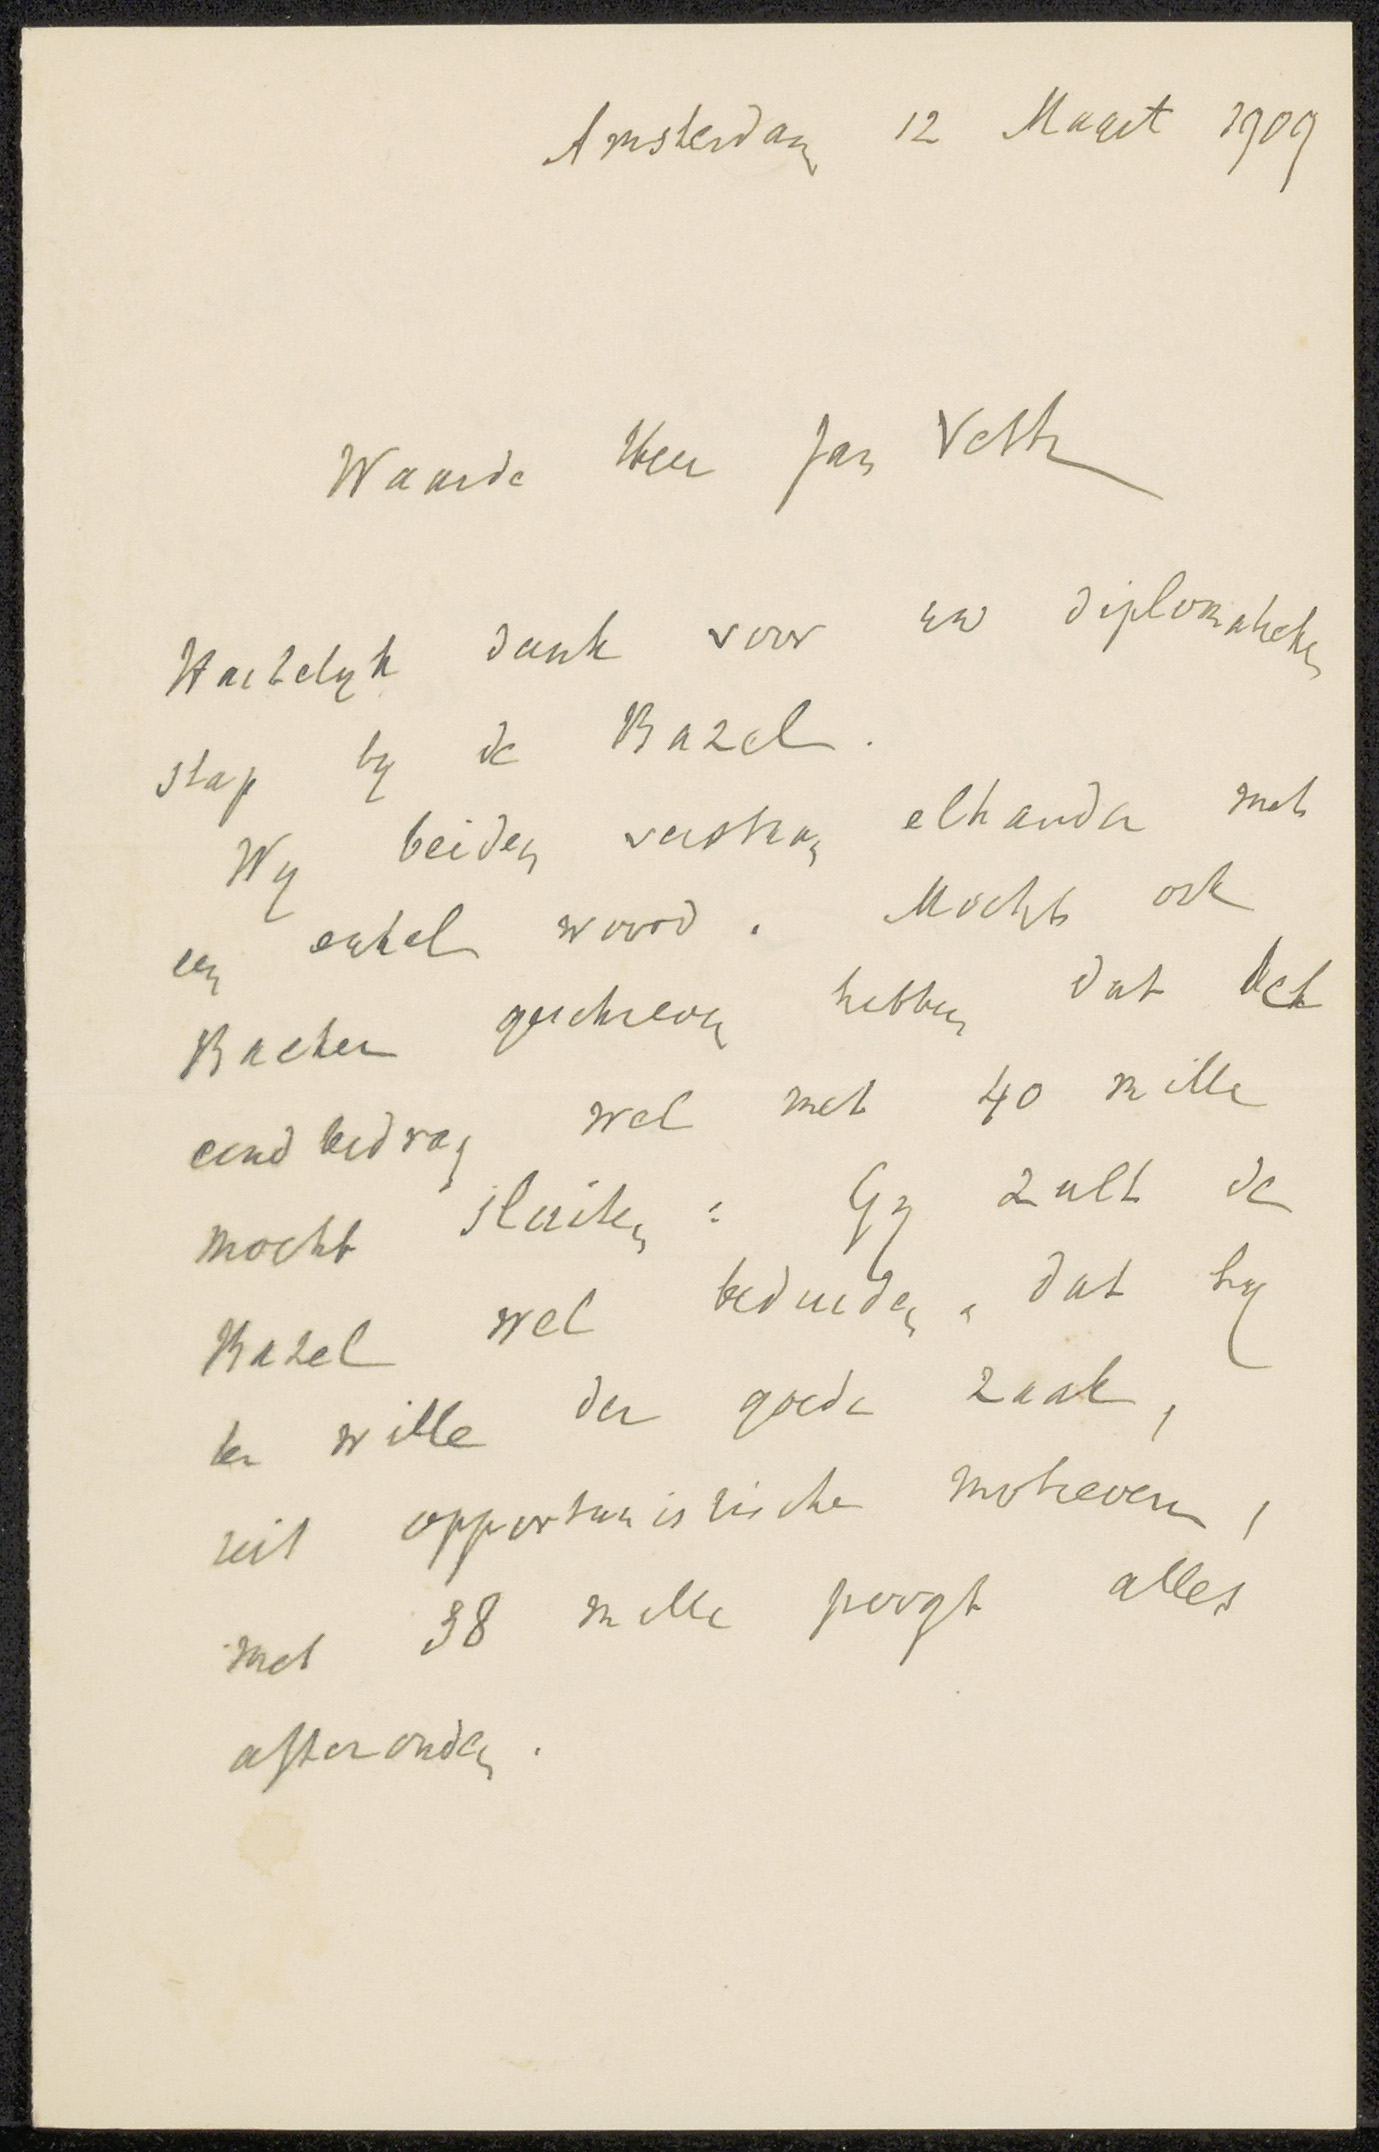 Amsterdam 12 Maart 1909
Waarde Heer Jan Veth
Hartelyk dank voor uw diplomatieken
stap by de Bazel.
Wy beiden verstaan elkander met
een enkel woord. Mocht ook
Backer geschreven hebben dat het
eindbedrag wel met 40 mille
mocht sluiten: Gy zult de
Bazel wel beduiden, dat hy
ter wille der goede zaak,
uit opportunistische motieven,
met 38 mille poogt alles
afteronden.